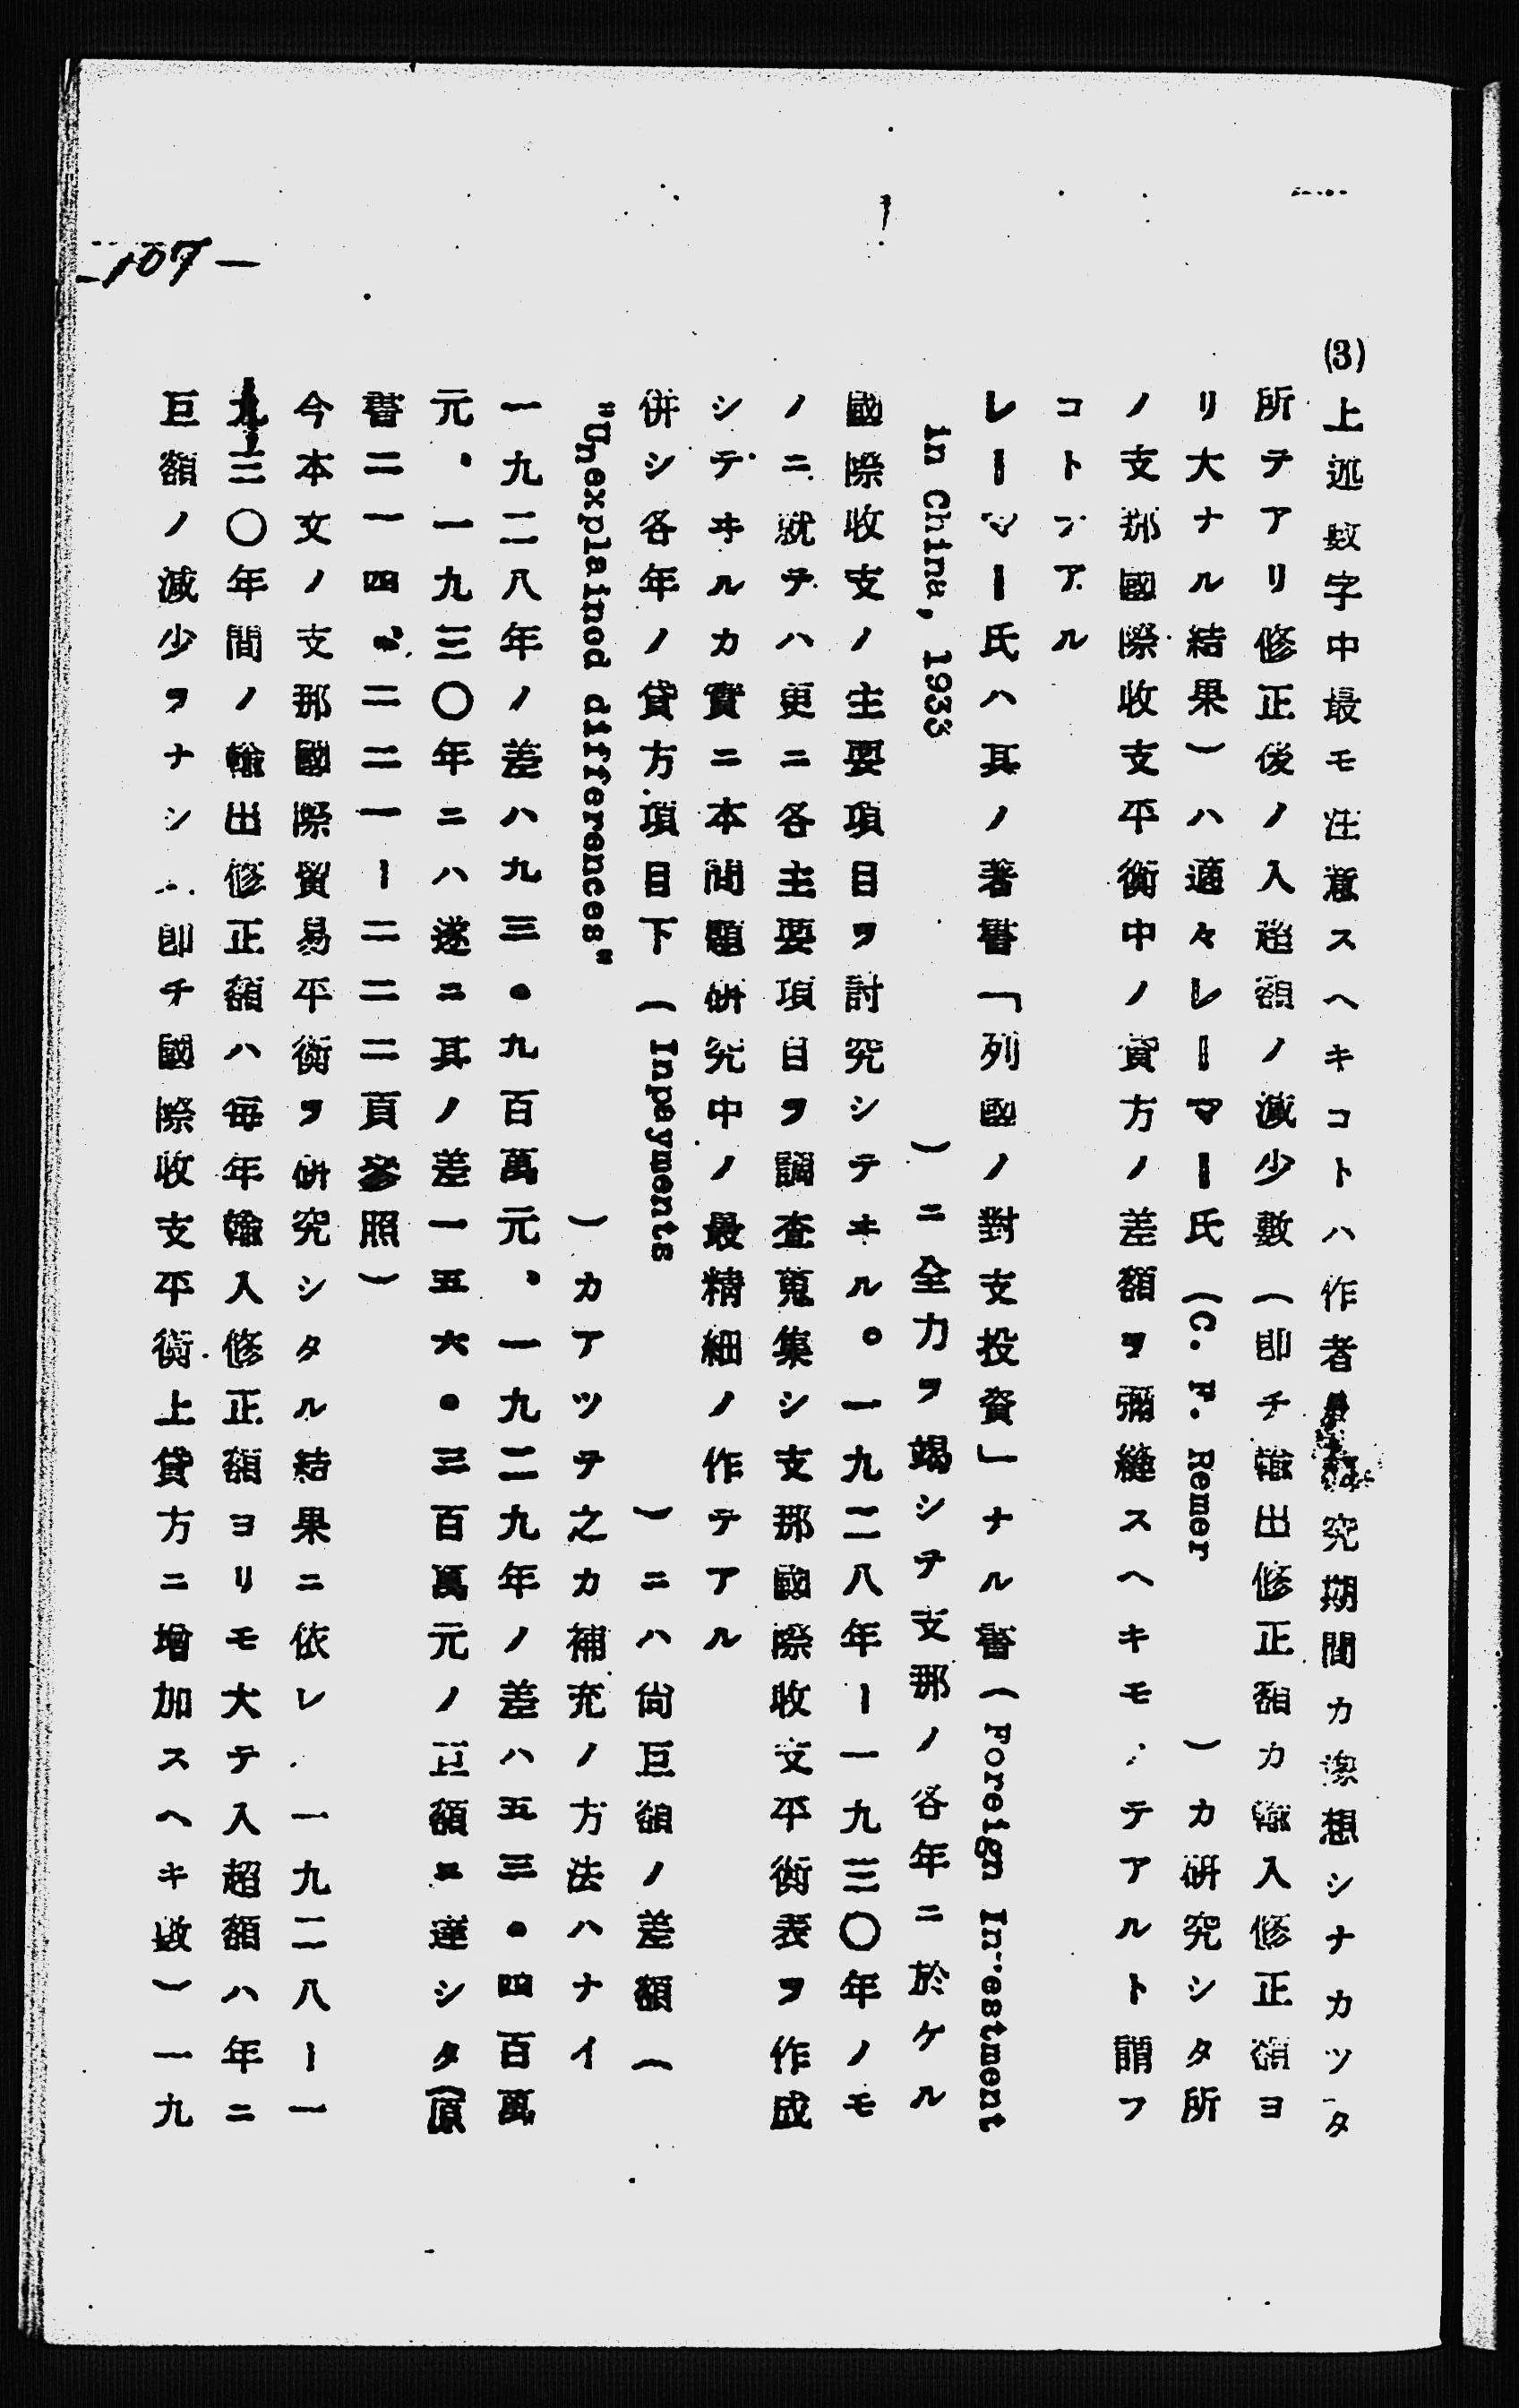 (3)上述數字中最モ注意スヘキコトハ作者研究期間カ豫想シナカツタ
所テアリ修正後ノ入超額ノ減少數(卽チ輸出修正額カ輸入修正額ヨ
リ大ナル結果)ハ適々レーマー氏(C. F. Remer)カ研究シタ所
ノ支那國際收支平衡中ノ貸方ノ差額ヲ彌縫スヘキモノテアルト謂フ
コトテアル
レーマー氏ハ其ノ著書「列國ノ對支投資」ナル書(Foreign Investment
in China, 1933)ニ全力ヲ竭シテ支那ノ各年ニ於ケル
國際收支ノ主要項目ヲ討究シテヰル。一九二八年ー一九三〇年ノモ
ノニ就テハ更ニ各主要項目ヲ調査蒐集シ支那國際收支平衡表ヲ作成
シテヰルカ實ニ本問題硏究中ノ最精細ノ作テアル
併シ各年ノ貸方項目下(Inpayments)ニハ尙巨額ノ差額(
"Unexplained differences")カアツテ之カ補充ノ方法ハナイ
一九二八年ノ差ハ九三.九百萬元、一九二九年ノ差ハ五三.四百萬
元、一九三〇年ニハ遂ニ其ノ差一五六.三百萬元ノ巨額ニ達シタ(原
書二一四、二二一ー二二二頁參照)
今本文ノ支那國際貿易平衡ヲ硏究シタル結果ニ依レ 一九二八ー一
九三〇年間ノ輸出修正額ハ每年輸入修正額ヨリモ大テ入超額ハ年ニ
巨額ノ減少ヲナシ 卽チ國際收支平衡上貸方ニ增加スヘキ數)一九
-107-